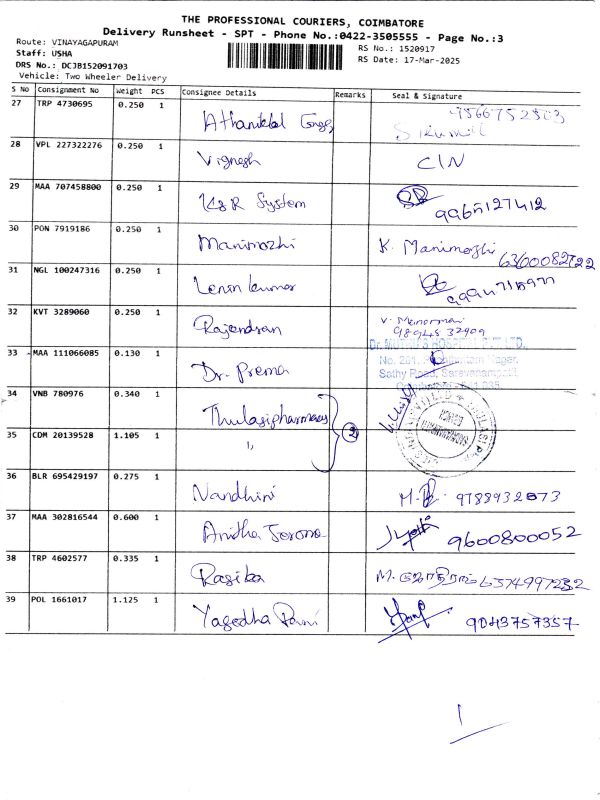 THE PROFESSIONAL COURIERS, COIMBATORE
Delivery Runsheet - SPT - Phone No.:0422-3505555 - Page No.:3
Route: VINAYAGAPURAM
Staff: USHA
DRS No.: DCJB152091703
Vehicle: Two Wheeler Delivery
RS No.: 1520917
RS Date: 17-Mar-2025
S No Consignment No Weight PCS Consignee Details Remarks Seal & Signature
27 TRP 4730695 0.250 1
28 VPL 227322276 0.250 1 Vignesh CIN
29 MAA 707458800 0.250 1 K&R System 9965127412
30 PON 7919186 0.250 1 Manimozhi K. Manimozhi 6360082722
31 NGL 100247316 0.250 1 Lenin kumar
32 KVT 3289060 0.250 1 Rajendran V. 9894532909
33 MAA 111066085 0.130 1 Dr. Prema
Sathy Road, Saravanampatti
34 VNB 780976 0.340 1 Thulasi pharmacy
35 CDM 20139528 1.105 1 " 2
36 BLR 695429197 0.275 1 Nandhini
37 MAA 302816544 0.600 1 Anitha 9600800052
38 TRP 4602577 0.335 1 Rasika 6374997232
39 POL 1661017 1.125 1 Yasodha Rani 9043757357
1